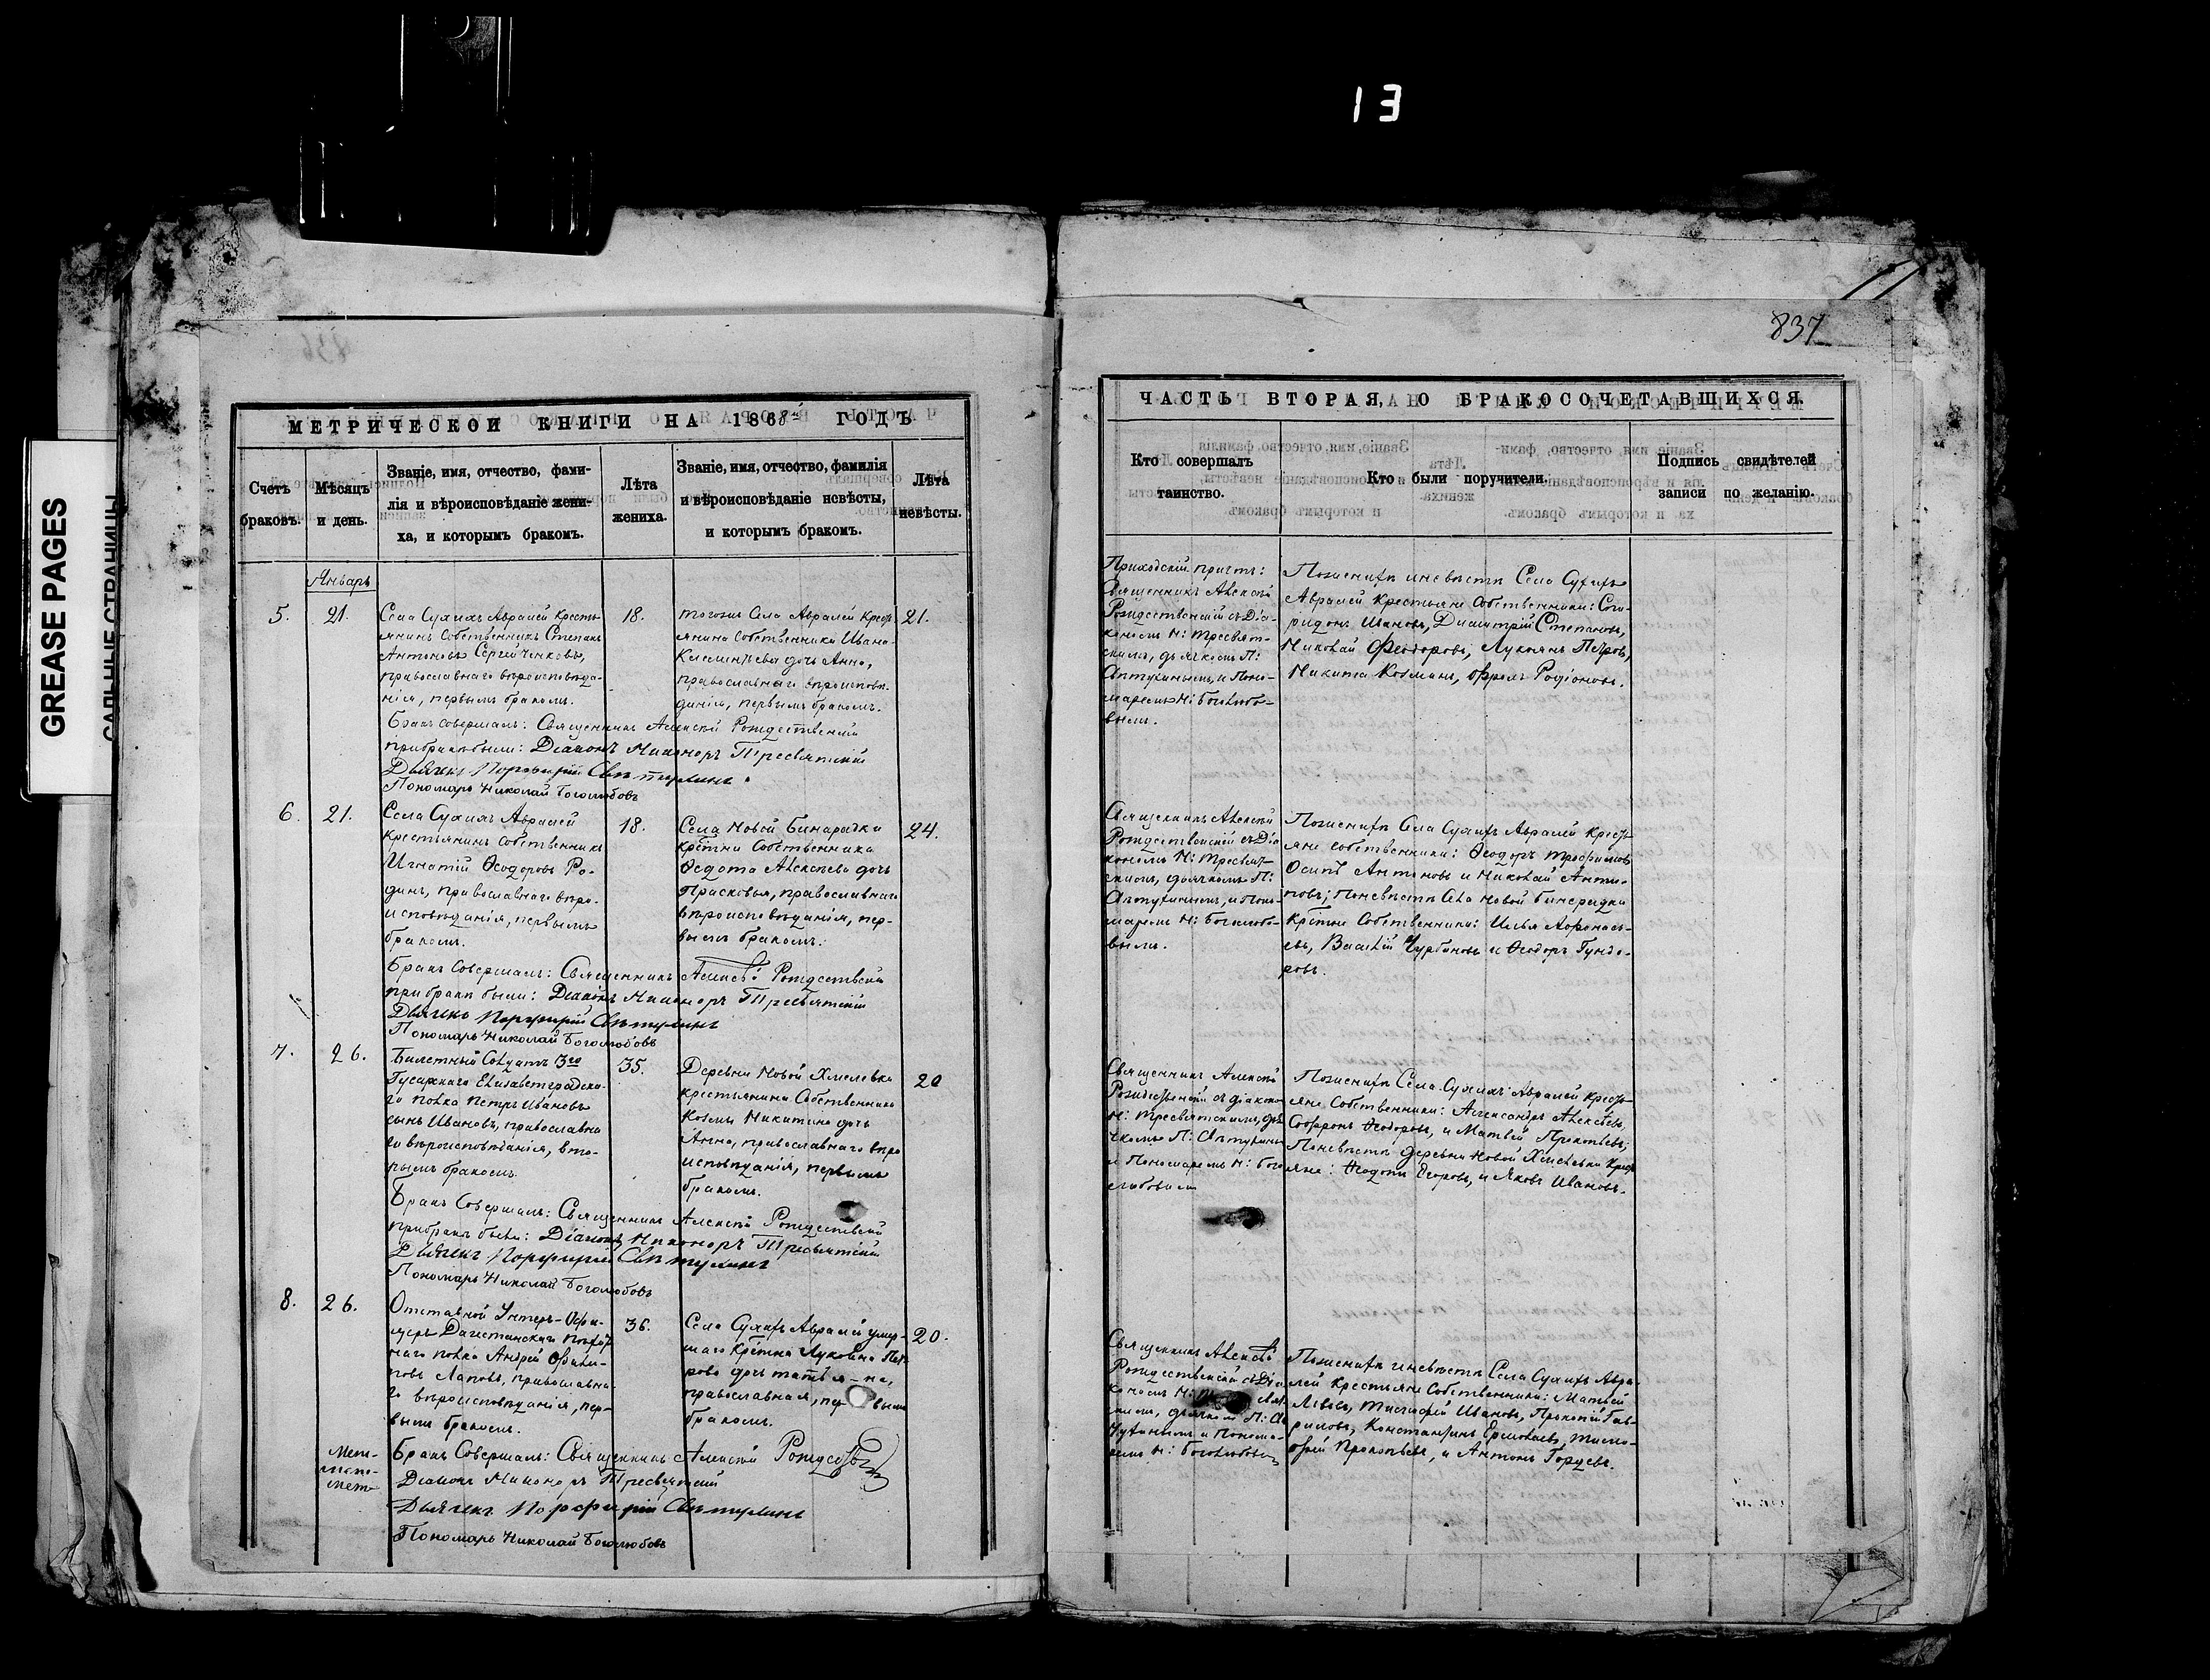 13
GREASE PAGES
САЛЬНЫЕ СТРАНИЦЫ
837
МЕТРИЧЕСКОЙ КНИГИ НА 1868й ГОДЪ
Счетъ браковъ.
Мѣсяцъ и день.
Званіе, имя, отчество, фами-
лія и вѣроисповѣданіе жени-
ха, и которымъ бракомъ.
Лѣта жениха.
Званіе, имя, отчество, фамилія
и вѣроисповѣданіе невѣсты,
и которымъ бракомъ.
Лѣта невѣсты.
Январь
5.
21.
Села Сухихъ Авралей кресть-
янинъ Собственникъ Степанъ
Антоновъ Сергейченковъ,
православнаго вѣроисповѣда-
нія, первымъ бракомъ.
18.
тогожъ Села Авралей крест
янина Собственника Ивана
Клементьева дочь Анна,
православнаго вѣроисповѣ-
данія, первымъ бракомъ.
21.
Бракъ совершалъ: Священникъ Алексѣй Рождественскій
при бракѣ были: Діаконъ Никаноръ Тресвятскій
Дьячекъ Порфирій
Пономарь Николай Боголюбовъ
6.
21.
Села Сухихъ Авралей
крестьянинъ собственникъ
Игнатій Ѳеодоровъ Ро-
динъ, православнаго вѣро-
исповѣданія, первымъ
бракомъ.
18.
Села Новой Бинарадки
крстна Собственника
Ѳедота Алексѣева дочь
Прасковья, православнаго
вѣроисповѣданія, пер-
вымъ бракомъ.
24.
Бракъ Совершалъ: Священникъ Алексѣй Рождествскій
при бракѣ были: Діаконъ Никаноръ Тресвятскій
Дьячекъ Порфирій
Пономарь Николай Боголюбовъ
7.
26.
Билетный Солдатъ 3го
Гусарскаго Елисаветградска-
го полка Петръ Ивановъ
сынъ Ивановъ, православна
го вѣроисповѣданія, вто-
рымъ бракомъ.
35.
Деревни Новой Хмелевки
крестьянина Собственника
Козьмы Никитина дочь
Анна, православнаго вѣро
исповѣданія, первымъ
бракомъ.
20
Бракъ Совершалъ: Священникъ Алексѣй Рождествскій
при бракѣ были: Діаконъ Никаноръ Тресвятскій
Дьячекъ Порфирій
Пономарь Николай Боголюбовъ
8.
26.
Отставной Унтеръ-Офи-
церъ Дагестанскаго пѣхот
наго полка Андрей Филип-
повъ Лаповъ, православна-
го вѣроисповѣданія, пер-
вымъ бракомъ.
36.
Села Сухихъ Авралей умер-
шаго крстна Лукьяна Пет-
рова дочь Татьяна,
православная, первымъ
бракомъ.
20.
Бракъ Совершалъ: Священникъ Алексѣй
Діаконъ Никаноръ Тресвятскій
Дьячекъ Порфирій
Пономарь Николай Боголюбовъ
ЧАСТЬ ВТОРАЯ, О БРАКОСОЧЕТАВШИХСЯ.
Кто совершалъ таинство.
Кто были поручители.
Подпись свидѣтелей записи по желанію.
Приходскій причтъ:
Священникъ Алексѣй
Рождественскій съ Діа-
кономъ Н: Тресвят-
скимъ, дьячкомъ П:
и Поно-
маремъ Н: Боголюбо-
вымъ.
По женихѣ и невѣстѣ Села Сухихъ
Авралей крестьяне собственники: Спи-
ридонъ Ивановъ, Димитрій Степановъ,
Николай Ѳеодоровъ, Лукьянъ Петровъ,
Никита Козминъ, Фролъ Родіоновъ.
Священникъ Алексѣй
Рождественскій съ Діа
кономъ Н: Тресвят-
скимъ, дьячкомъ П:
и Поно-
маремъ Н: Боголюбо-
вымъ.
По женихѣ Села Сухихъ Авралей крест-
яне собственники: Ѳеодоръ Трофимовъ
Осипъ Антоновъ и Николай Анти-
повъ; по невѣстѣ Села Новой Бинарадки
крстне Собственники: Илья Афонась-
евъ, Василій Чурбановъ и Ѳеодоръ Гундо-
ровъ.
Священникъ Алексѣй
съ діакономъ
Н: Тресвятскимъ, дья
чкомъ П:
и Пономаремъ Н: Бого
любовымъ
По женихѣ Села Сухихъ Авралей крест-
яне Собственники: Александръ Алексѣевъ,
Софронъ Ѳеодоровъ, и Матвей Прокопьевъ;
По невѣстѣ деревни Новой Хмелевки крест
яне: Ѳедотъ Егоровъ, и Яковъ Ивановъ.
Священникъ Алексѣй
Рождественскій съ Діа
кономъ Н:
скимъ, дьячкомъ П:
и Понома-
ремъ Н: Боголюбовымъ
По женихѣ и невѣстѣ Села Сухихъ Авра-
лей крестьяне Собственники: Матвей
Львовъ, Тимофей Ивановъ, Прокопій Гав-
риловъ, Константинъ Ермолаевъ, Тимо-
фей Прокопьевъ, и Антонъ